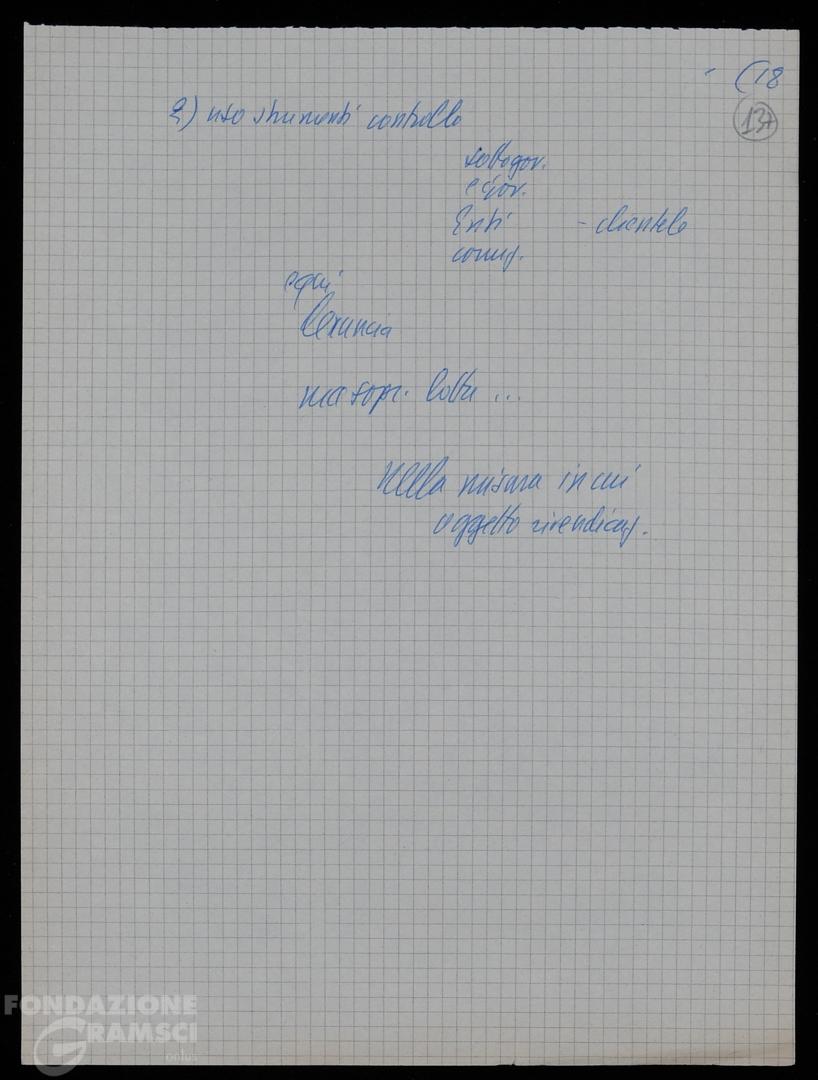 (18
137
2) uso strumenti controllo
sottogov.
e gov.
Enti - clientele
comug.
e qui
denuncia
ma sopr. lotta ...
Nella misura in cui
oggetto rivendicaz.
FONDAZIONE
GRAMSCI
onlus